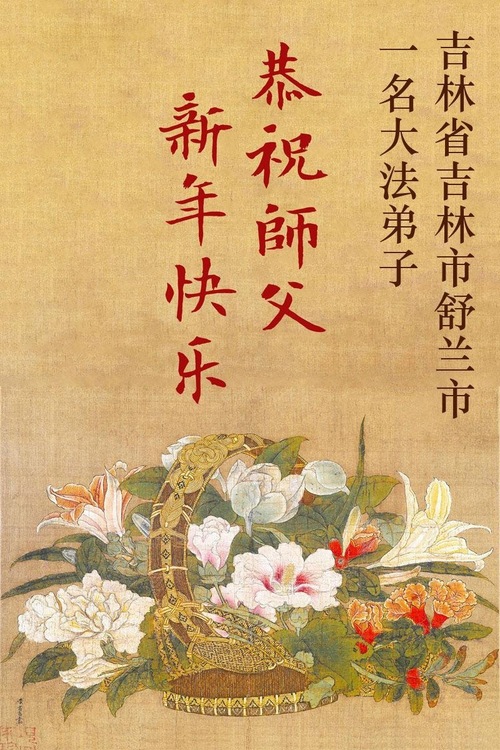 吉林省吉林市舒兰市
一名大法弟子
恭祝師父
新年快乐